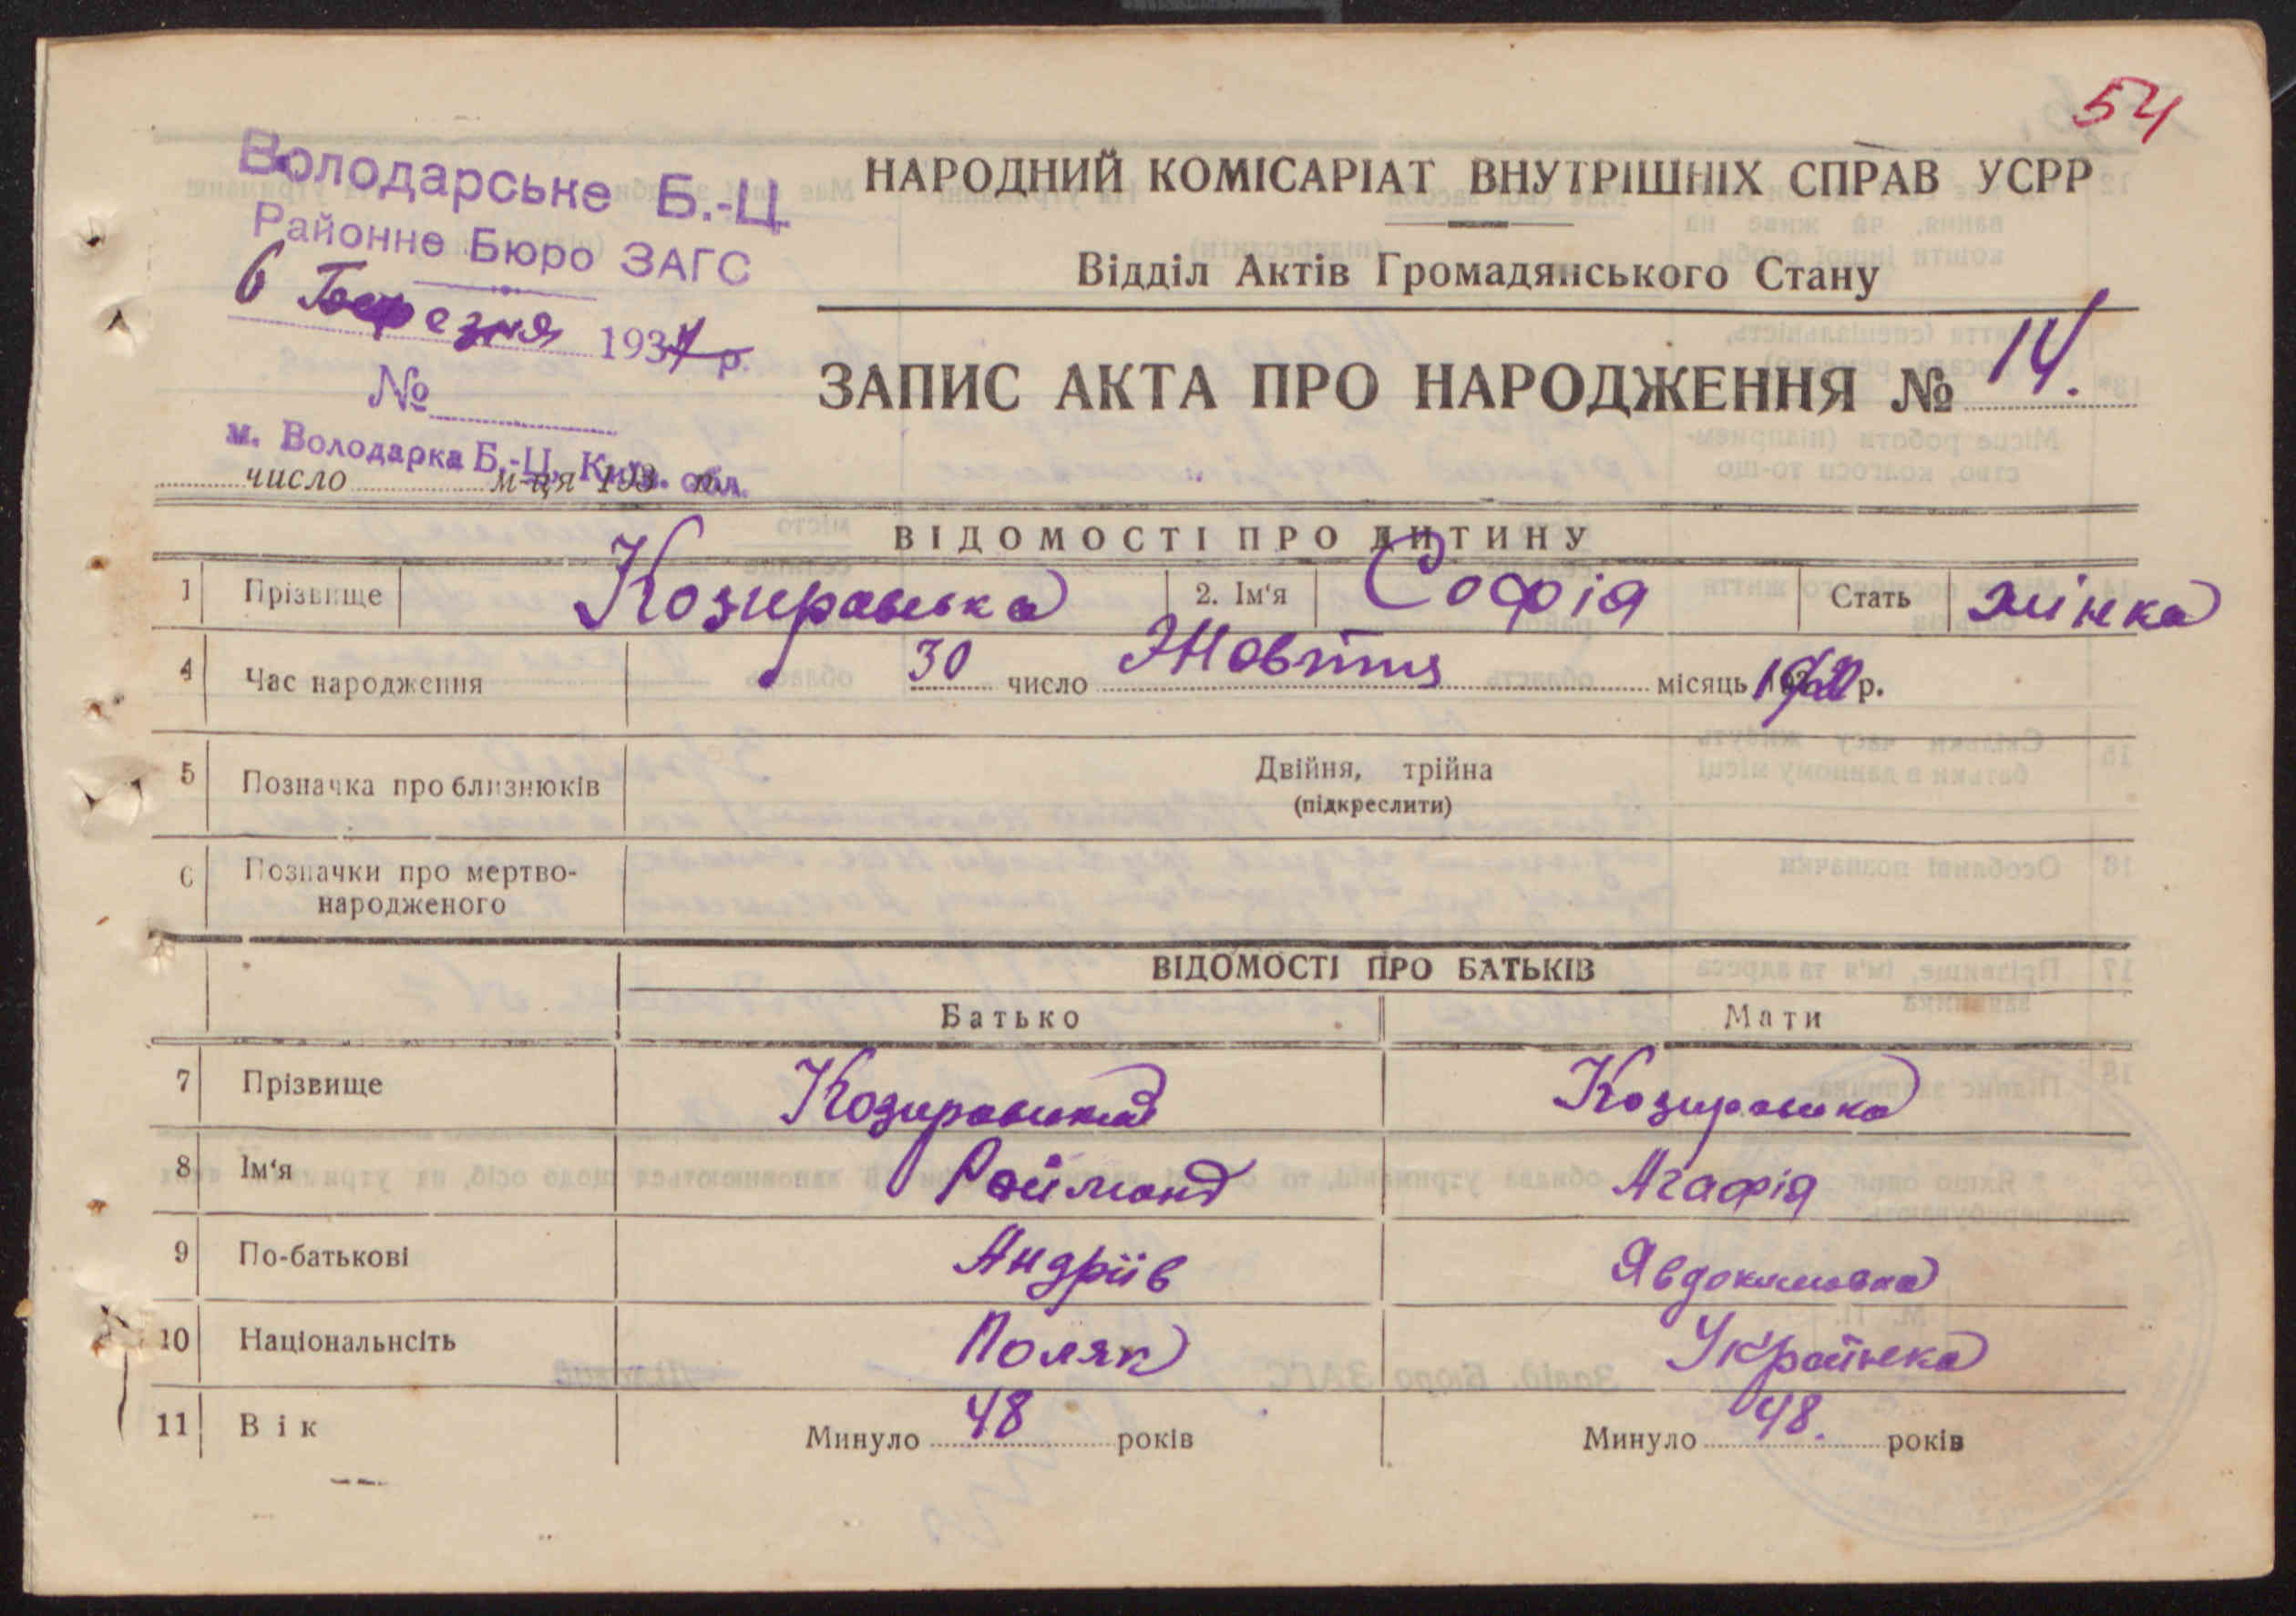 54
Володарське Б.-Ц
Районне Бюро ЗАГС
6 Березня 1937 р.
№
м. Володарка Б.-Ц. Київ. обл.
число м-ця 193 р.
НАРОДНИЙ КОМІСАРІАТ ВНУТРІШНІХ СПРАВ УСРР
Відділ Актів Громадянського Стану
ЗАПИС АКТА ПРО НАРОДЖЕННЯ № 14.
ВІДОМОСТІ ПРО ДИТИНУ
1 Прізвище Козировська 2. Ім'я Софія Стать жінка
4 Час народження 30 число Жовтня місяць р.
5 Позначка про близнюків Двійня, трійна
(підкреслити)
6 Позначки про мертво-
народженого
ВІДОМОСТІ ПРО БАТЬКІВ
Батько Мати
7 Прізвище Козировська
8 Ім'я Раймонд Агафія
9 По-батькові Андріїв Явдокимовна
10 Національнсіть Поляк Українка
11 Вік Минуло 48 років Минуло 48. років